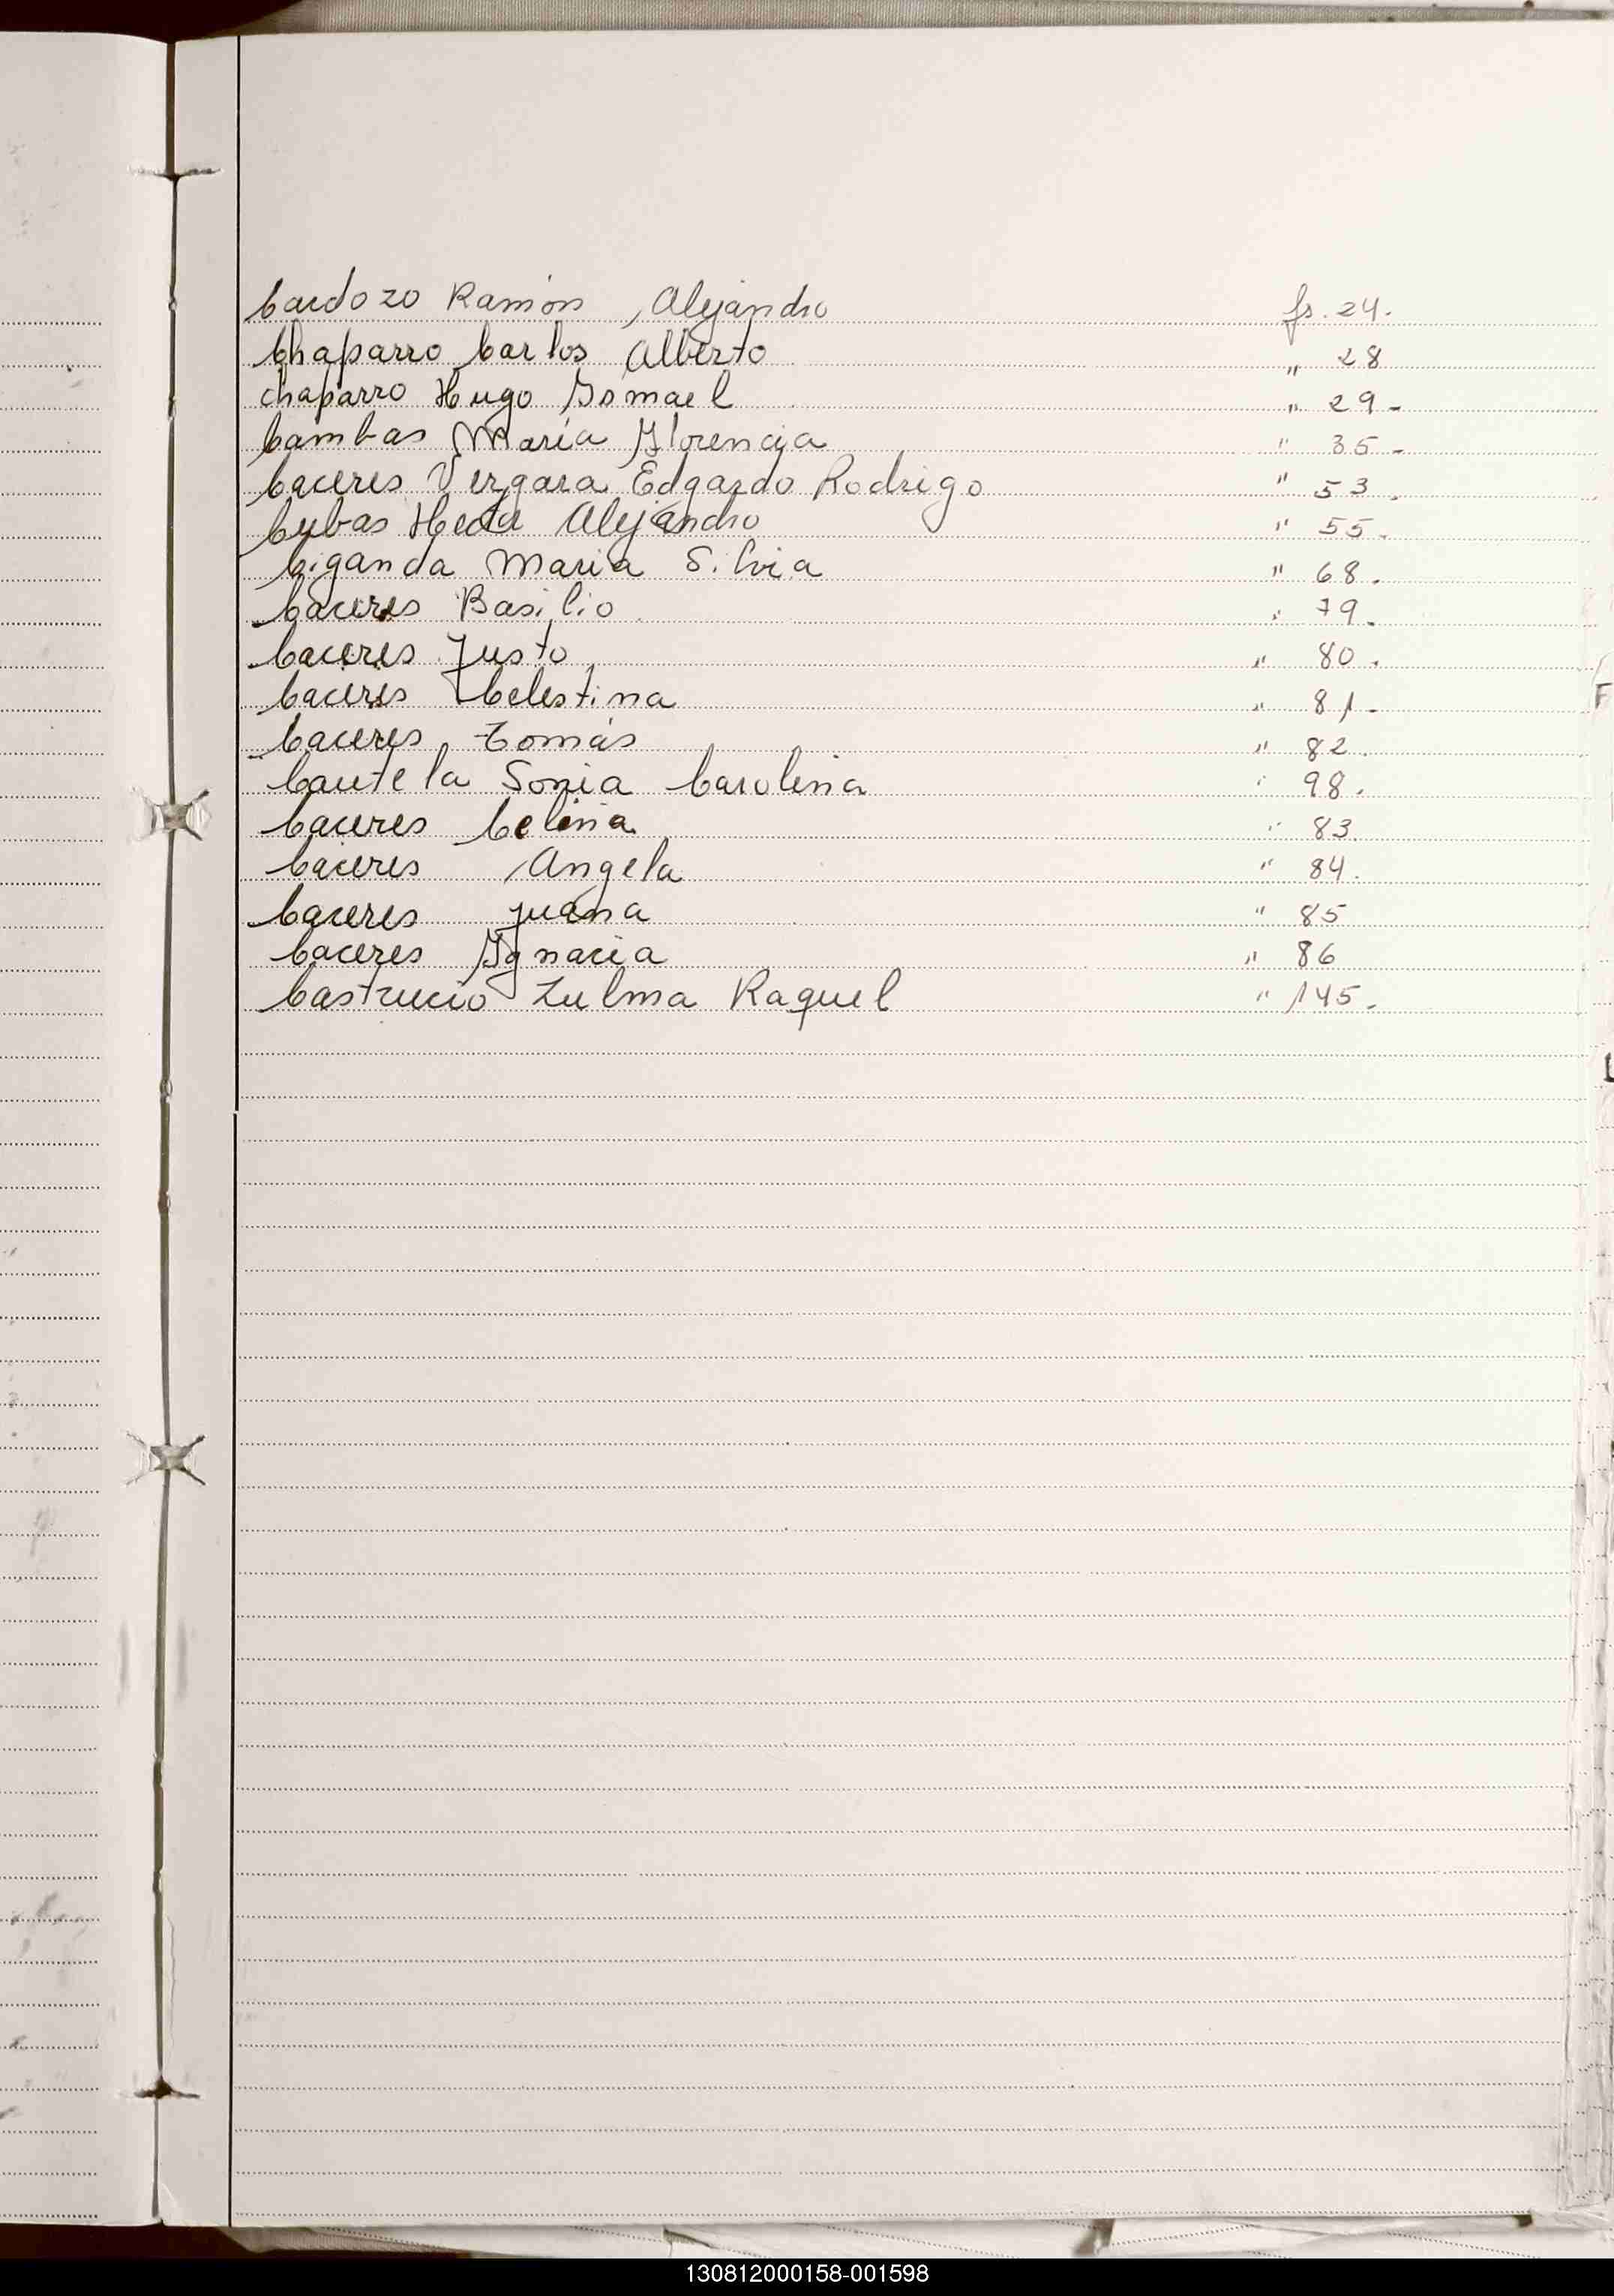 Cardozo Ramón Alejandro fs. 24.
Chaparro Carlos Alberto " 28
chaparro Hugo Ismael " 29-
Cambas María Florencia " 35-
Caceres Vergara Edgardo Rodrigo " 53.
Cubas Alejandro " 55.
Ciganda Maria Silvia " 68.
Caceres Basilio " 79.
Caceres Justo " 80.
Caceres Celestina " 81-
Caceres Tomás " 82.
Cautela Sonia Carolina " 98.
Caceres Celina " 83.
Caceres Angela " 84.
Caceres Juana " 85
Caceres Ygnacia " 86
Castrucio Zulma Raquel " 145.
130812000158-001598